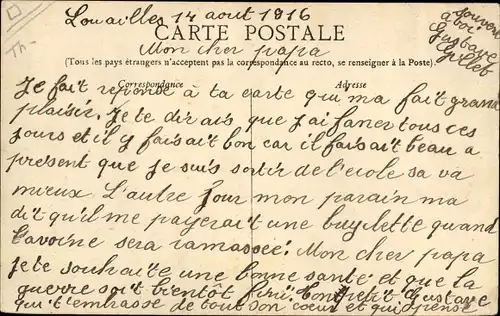 Louailles 14 aout 1916
souvent
a toi
Gustave
Gilleb
Th-
CARTE POSTALE
Mon cher papa
(Tous les pays étrangers n'acceptent pas la correspondance au recto, se renseigner à la Poste).
Correspondance
Adresse
Je fait reponse à ta carte qui ma fait grand
plaisir. Je te dirais que J'ai faner tous ces
jours et il y faisait bon car il faisait beau a
present que je suis sortir de l'ecole sa va
mieux L'autre Jour mon parain ma
dit qu'il me payerait une buyclette quand
l'avoine sera ramassée. Mon cher papa
Je te souhaite une bonne santé et que la
guerre soit b'ientôt fini. Ton petit Gustave
qui t'embrasse de tout son cœur et qui pense